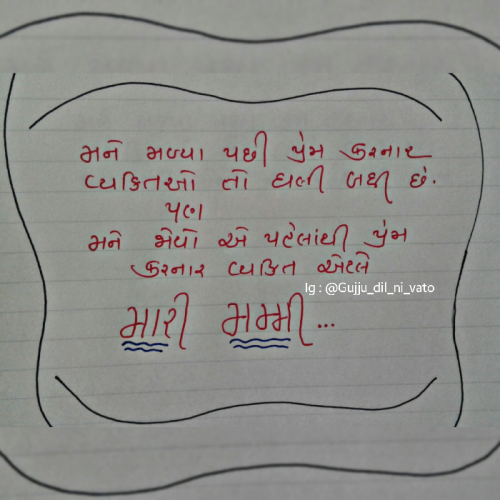 મને મળ્યા પછી પ્રેમ કરનાર
વ્યકિતઓ તો ઘણી બધી છે.
પણ
મને જોયા એ પહેલાંથી પ્રેમ
કરનાર વ્યકિત એટલે
Ig : @Gujju_dil_ni_vato
મારી મમ્મી...